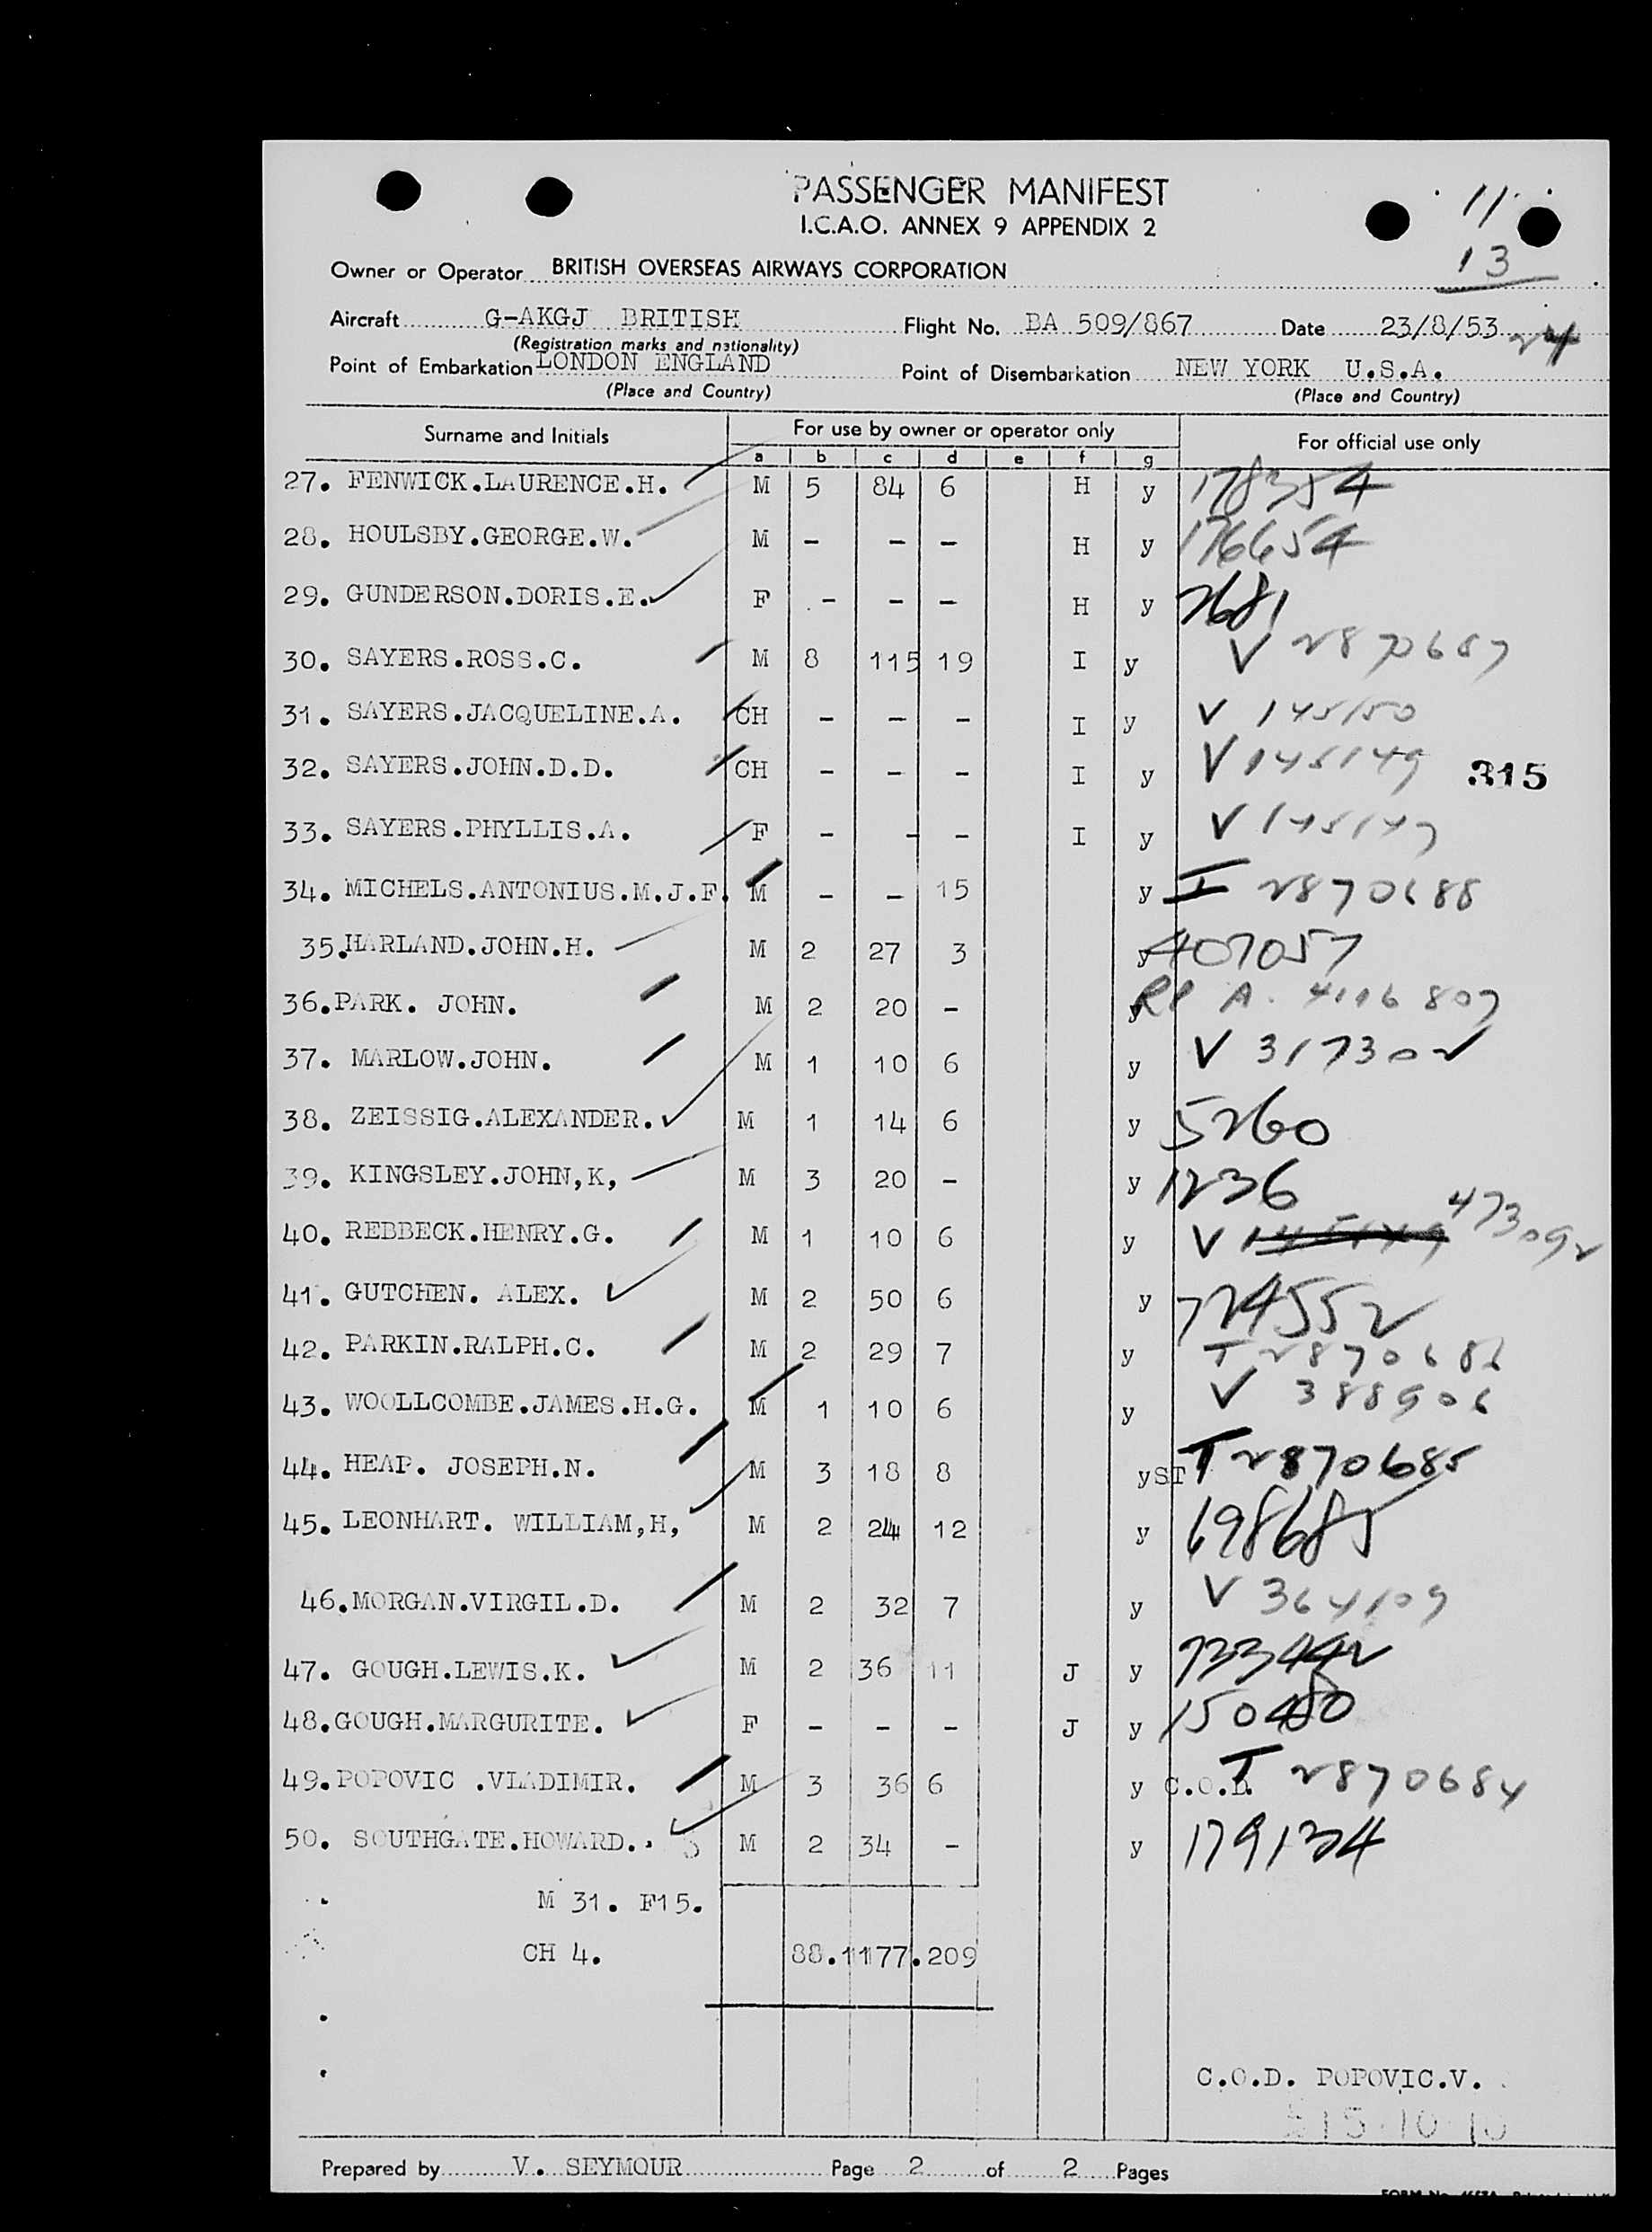 PASSENGER MANIFEST
11
I.C.A.O. ANNEX 9 APPENDIX 2
13
Owner or Operator BRITISH OVERSEAS AIRWAYS CORPORATION
Aircraft G-AKGJ BRITISH Flight No. BA 509/867 Date 23/8/53 24
(Registration marks and nationality)
Point of Embarkation LONDON ENGLAND Point of Disembarkation NEW YORK U.S.A.
(Place and Country) (Place and Country)
Surname and Initials For use by owner or operator only For official use only
a b c d e f g
27. FENWICK.LAURENCE.H. M 5 84 6 H y 178354
28. HOULSBY.GEORGE.W. M - - - H y 176654
29. GUNDERSON.DORIS.E. F - - - H y 7681
30. SAYERS.ROSS.C. M 8 115 19 I y V 2870687
31. SAYERS.JACQUELINE.A. CH - - - I y V 145150
32. SAYERS.JOHN.D.D. CH - - - I y V 145149 315
33. SAYERS.PHYLLIS.A. F - - - I y V 145147
34. MICHELS.ANTONIUS.M.J.F. M - - 15 y T 2870688
35.HARLAND.JOHN.H. M 2 27 3 y 407057
36.PARK. JOHN. M 2 20 - y RP A. 4116807
37. MARLOW.JOHN. M 1 10 6 y V 317302
38. ZEISSIG.ALEXANDER. M 1 14 6 y 5260
39. KINGSLEY.JOHN,K, M 3 20 - y 1236
40. REBBECK.HENRY.G. M 1 10 6 y V 473092
41. GUTCHEN. ALEX. M 2 50 6 y 724552
42. PARKIN.RALPH.C. M 2 29 7 y T 2870686
43. WOOLLCOMBE.JAMES.H.G. M 1 10 6 y V 388906
44. HEAP. JOSEPH.N. M 3 18 8 y ST T 2870685
45. LEONHART. WILLIAM,H, M 2 24 12 y 698685
46.MORGAN.VIRGIL.D. M 2 32 7 y V 364109
47. GOUGH.LEWIS.K. M 2 36 11 J y 733442
48.GOUGH.MARGURITE. F - - - J y 150480
49.POPOVIC .VLADIMIR. M 3 36 6 y C.O.D. T 2870684
50. SOUTHGATE.HOWARD. M 2 34 - y 179134
M 31. F15.
CH 4. 88.1177.209
C.O.D. POPOVIC.V.
Prepared by V. SEYMOUR Page 2 of 2 Pages